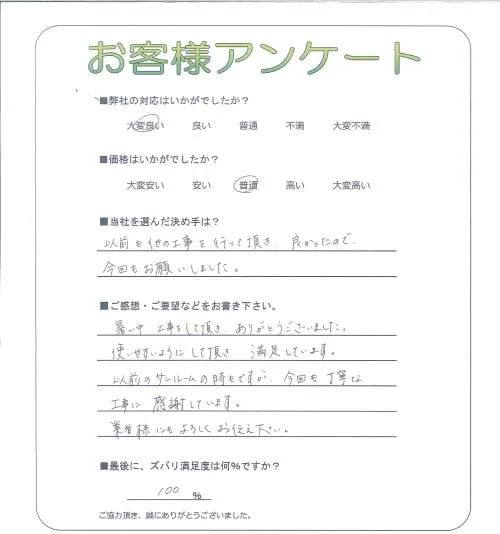 お客様アンケート
■弊社の対応はいかがでしたか？
大変良い 良い 普通 不満 大変不満
■価格はいかがでしたか？
大変安い 安い 普通 高い 大変高い
■当社を選んだ決め手は？
以前も他の工事を行って頂き、良かったので、
今回もお願いしました。
■ご感想・ご要望などをお書き下さい。
暑い中 工事をして頂き、ありがとうございました。
使いやすいようにして頂き、満足しています。
以前のサンルームの時もですが、今回も丁寧な
工事に 感謝しています。
業者様にもよろしくお伝え下さい。
■最後に、ズバリ満足度は何％ですか？
100 ％
ご協力頂き、誠にありがとうございました。